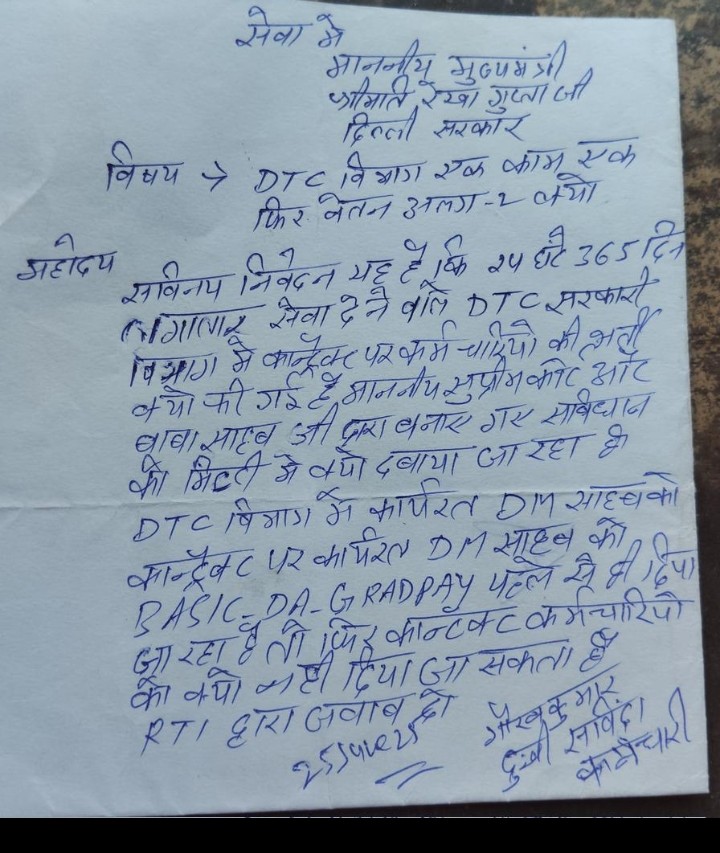 सेवा मे
माननीय मुख्यमंत्री
श्रीमति रेखा गुप्ता जी
दिल्ली सरकार
विषय → DTC विभाग एक काम एक
फिर वेतन अलग-2 क्यो
महोदय
सविनय निवेदन यह है कि 24 घंटे 365 दिन
लगातार सेवा देने वाले DTC सरकारी
विभाग मे कान्ट्रेक्ट पर कर्मचारियो की भर्ती
क्यो की गई है माननीय सुप्रीम कोर्ट और
बाबा साहब जी द्वारा बनाए गए संविधान
को मिट्टी मे क्यो दबाया जा रहा है
DTC विभाग मे कार्यरत DM साहब को
कान्ट्रेक्ट पर कार्यरत DM साहब को
BASIC-DA-GRADPAY पहले से ही दिया
जा रहा है तो फिर कान्टेक्ट कर्मचारियो
को क्यो नही दिया जा सकता है
RTI द्वारा जवाब दो
कुमार
दुःखी संविदा
कर्मचारी